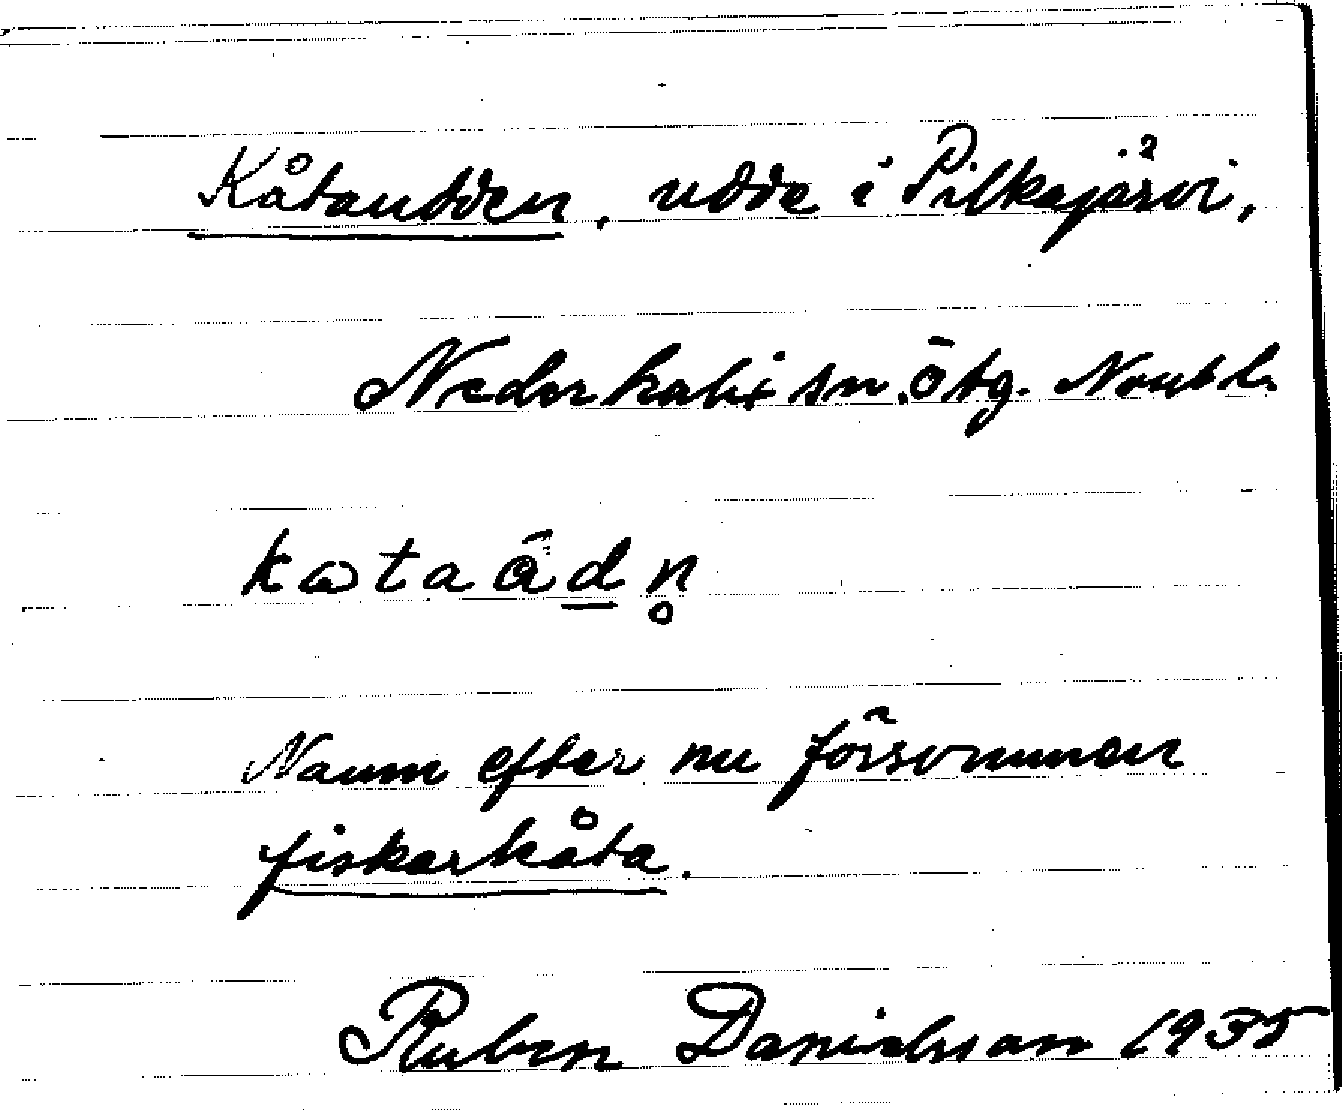 Kåtaudden, udde i Pilkajärvi,
Nederkalix sn. ö tg. Nbttn
kɷtaädn̥
Namn efter nu försvunnen
fiskarkåta.
Ruben Danielsson 1935